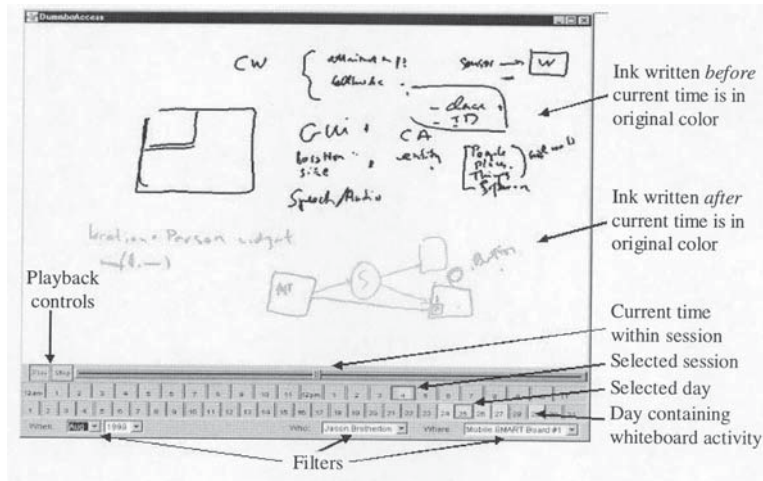 DummboAccess
CW
sensor → W
- ID
GUI CA
location
size
Speech/Audio
People
Places
Things
location + Person widget
S
Button
Ink written before
current time is in
original color
Ink written after
current time is in
original color
Playback
controls
Current time
within session
Selected session
Selected day
Day containing
whiteboard activity
Play Stop
12am 1 2 3 4 5 6 7 8 9 10 11 12pm 1 2 3 4 5 6 7
1 2 3 4 5 6 7 8 9 10 11 12 13 14 15 16 17 18 19 20 21 22 23 24 25 26 27 28 29
When: Aug 1999 Who: Jason Brotherton Where: Mobile SMART Board #1
Filters